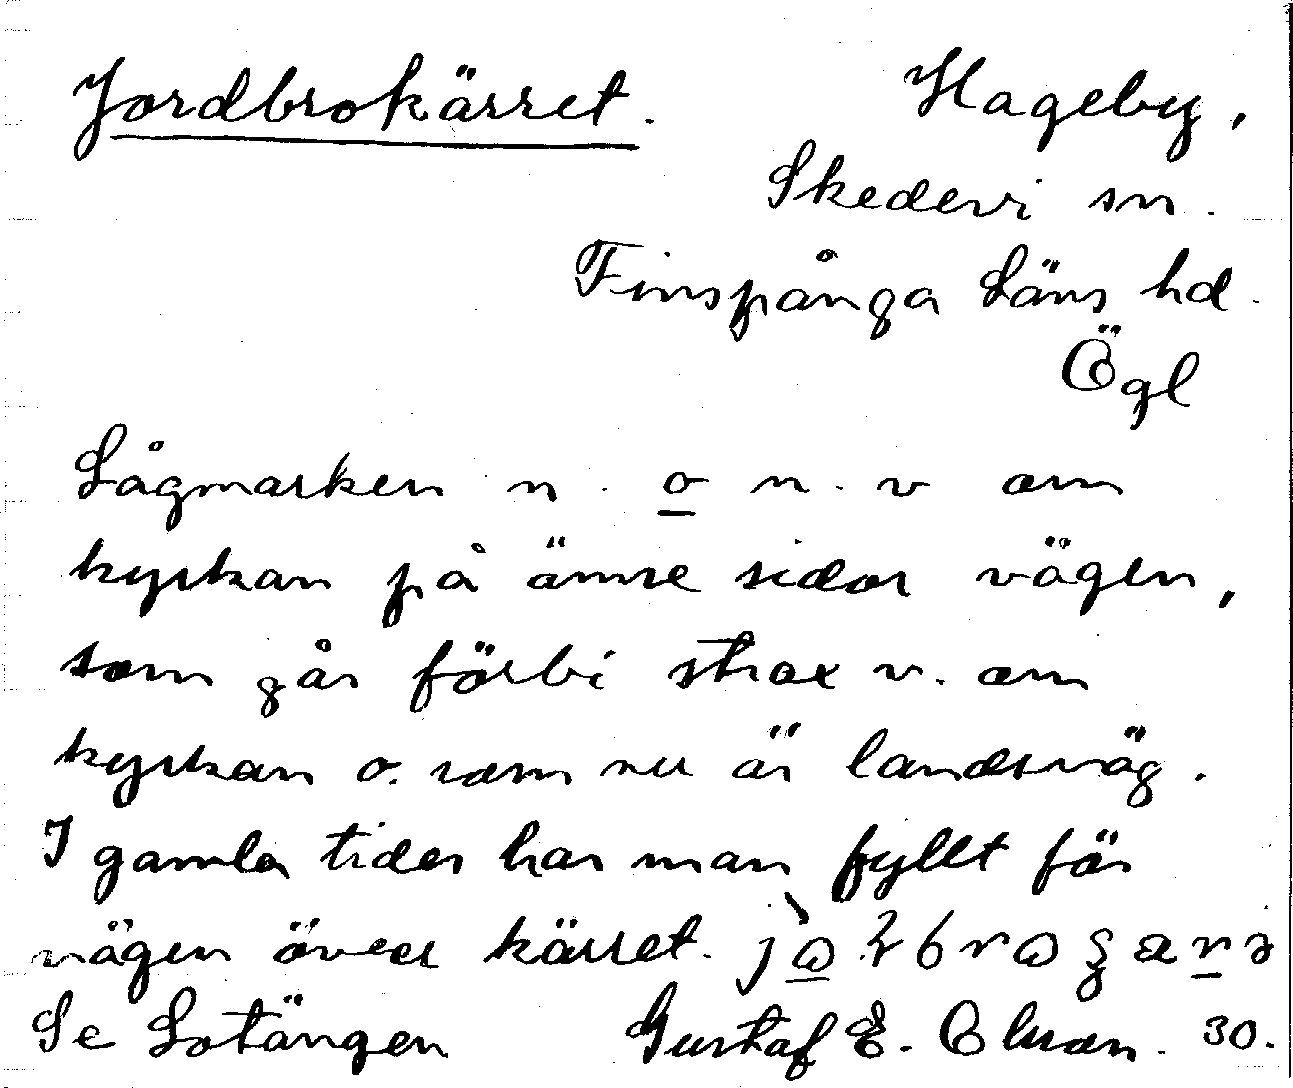 Jordbrokärret. Hageby,
Skedevi sn.
Finspånga Läns hd.
Ögl
Lågmarken n. o n.v om
kyrkan på ömse sidor vägen,
som går förbi strax v. om
kyrkan o. som nu är landsväg.
I gamla tider har man fyllt för
vägen över kärret.
Se Lotängen Gustaf E. Olson. 30.